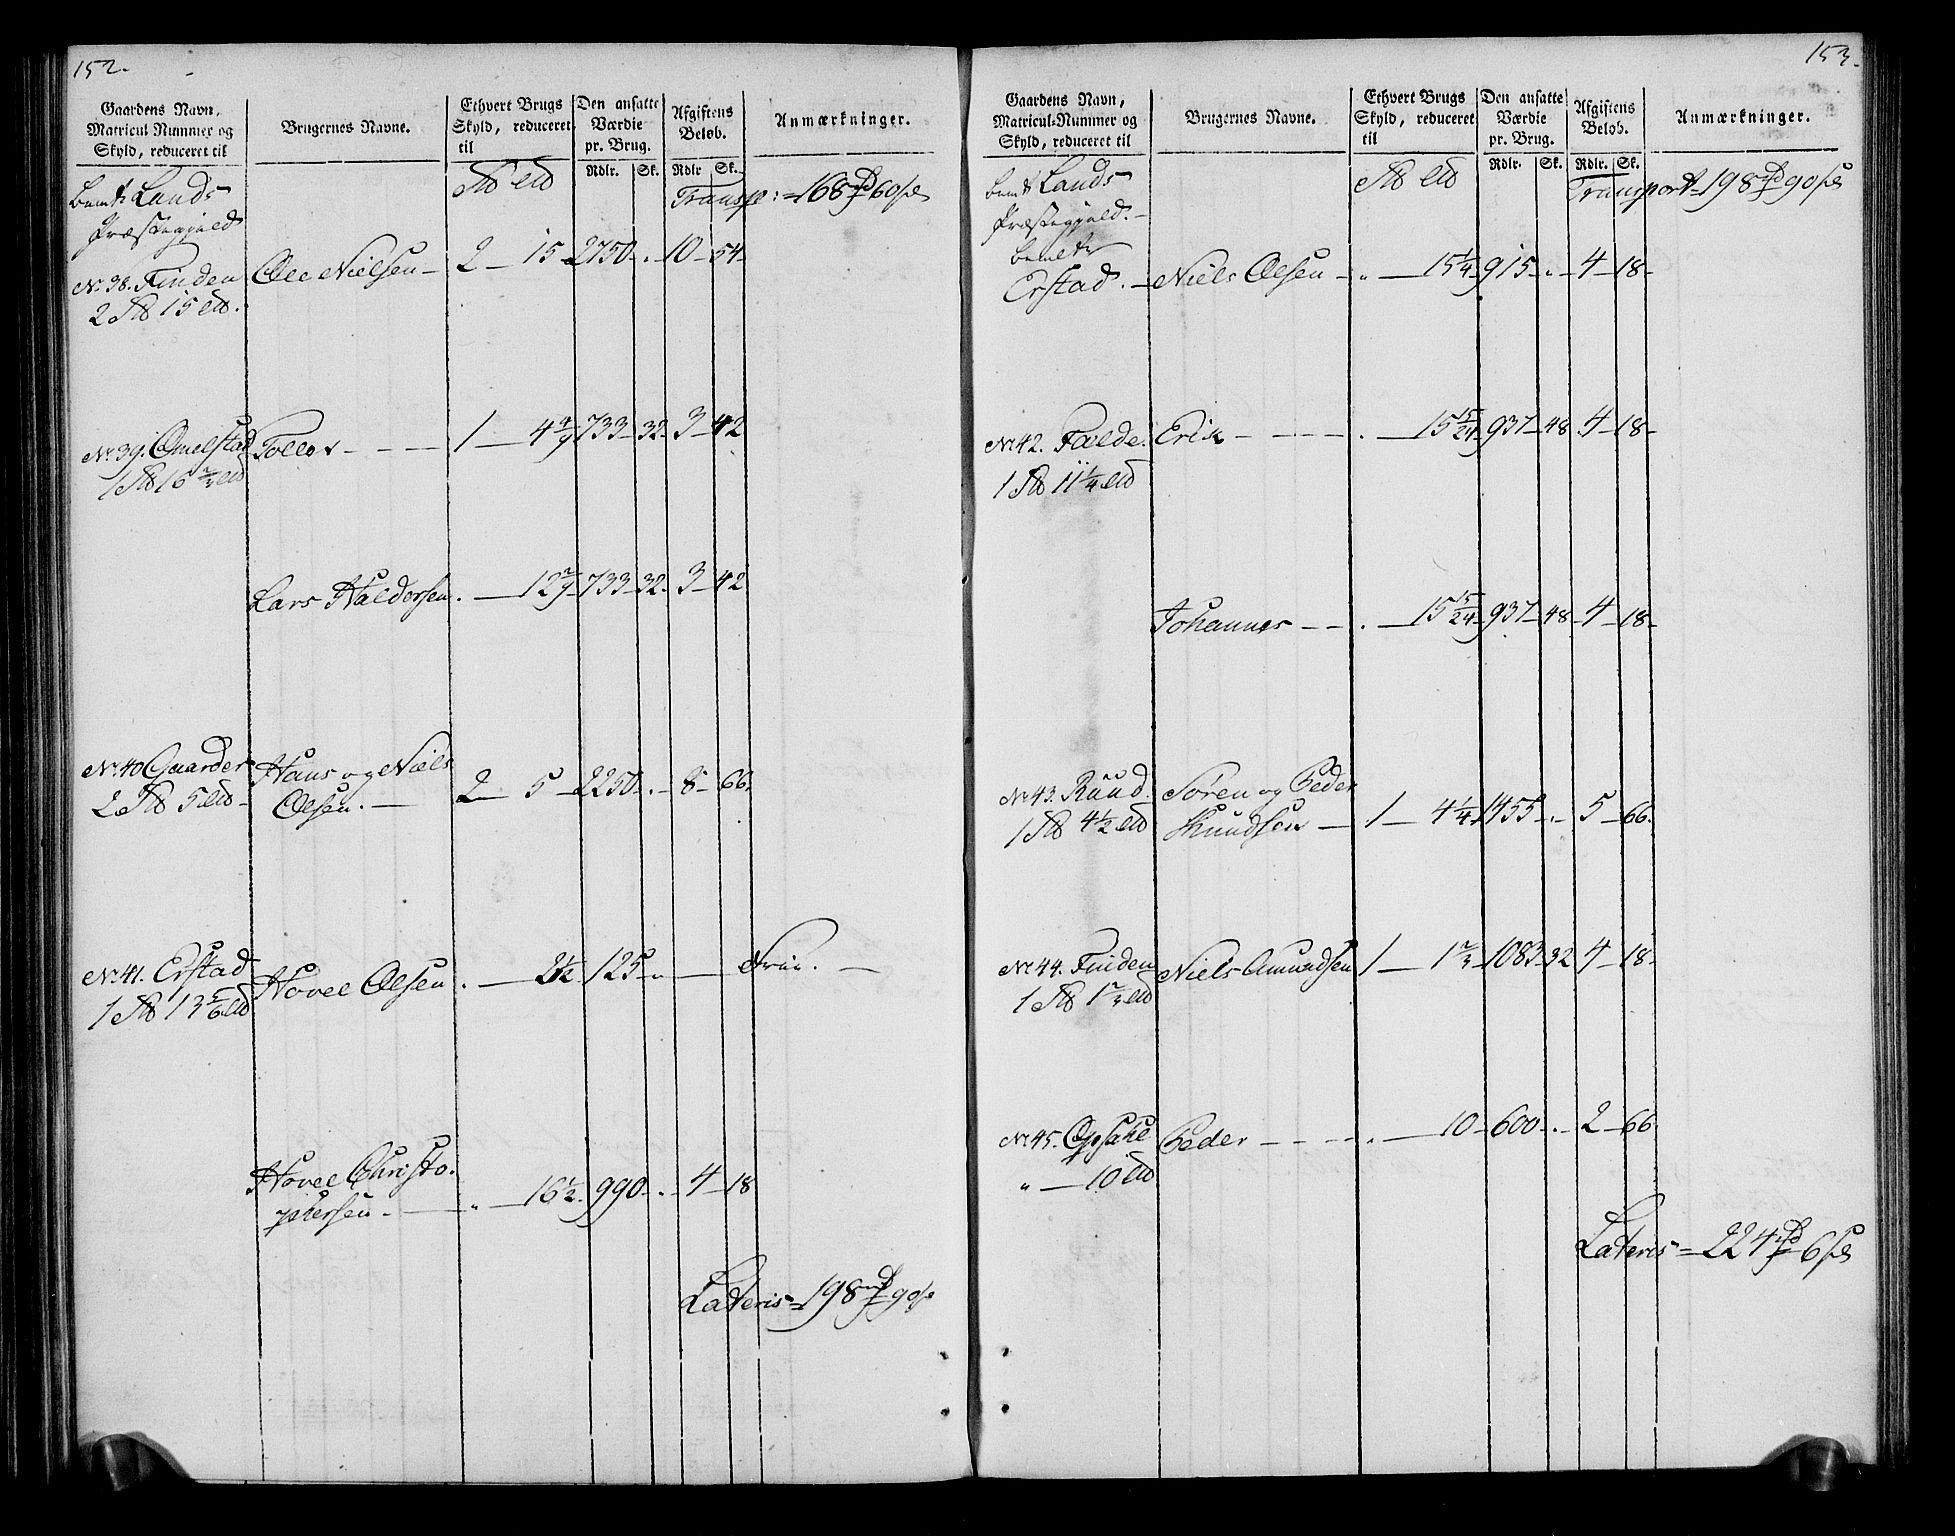 152.
Gaardens Navn, Matricul Nummer og Skyld, reduceret til | Brugernes Navne. | Ethvert Brugs Skyld, reduceret til | Den ansatte Værdie pr. Brug. | Afgiftens Beløb. | Anmærkninger.
Rdlr. Sk. Rdlr Sk.
bemte Lands Transp: = 168 rd 60 sk
Præstegjeld
No 38. Finden Ole Nielsen 2 15 2750 - 10 54
2 15
No 39. Omelstad Tollev 1 4 4/9 733 32 3 42
1 16 2/3
Lars Haldorsen 12 2/9 733 32 3 42
No 40 Gaarder Hans og Niels 2 5 2250 - 8 66
2 5 Olsen.
No 41. Erstad Hovel Olsen 2 1/2 125 Frie.
1 13 5/6
Hovel Christo- 16 1/2 990 - 4 18
phersen
Lateris = 198 rd 90 sk
153.
Gaardens Navn, Matricul-Nummer og Skyld, reduceret til | Brugernes Navne. | Ethvert Brugs Skyld, reduceret til | Den ansatte Værdie pr. Brug. | Afgiftens Beløb. | Anmærkninger.
Rdlr. Sk. Rdlr. Sk.
bemte Lands Transport 198 rd 90 sk
Præstegjeld.
bemelte
Erstad. Niels Olsen 15 1/4 915 - 4 18
No 42. Falde. Erik 15 15/24 937 48 4 18
1 11 1/4
Johannes 15 15/24 937 48 4 18
No 43. Rüüd Sören og Peder
1 4 1/2 Knudsen 1 4 1/4 1455 - 5 66
No 44. Finden Niels Amundsen 1 1 2/3 1083 32 4 18
1 1 2/3
No 45. Opsahl Peder 10 600 - 2 66
" 10
Lateris = 224 rd 6 sk